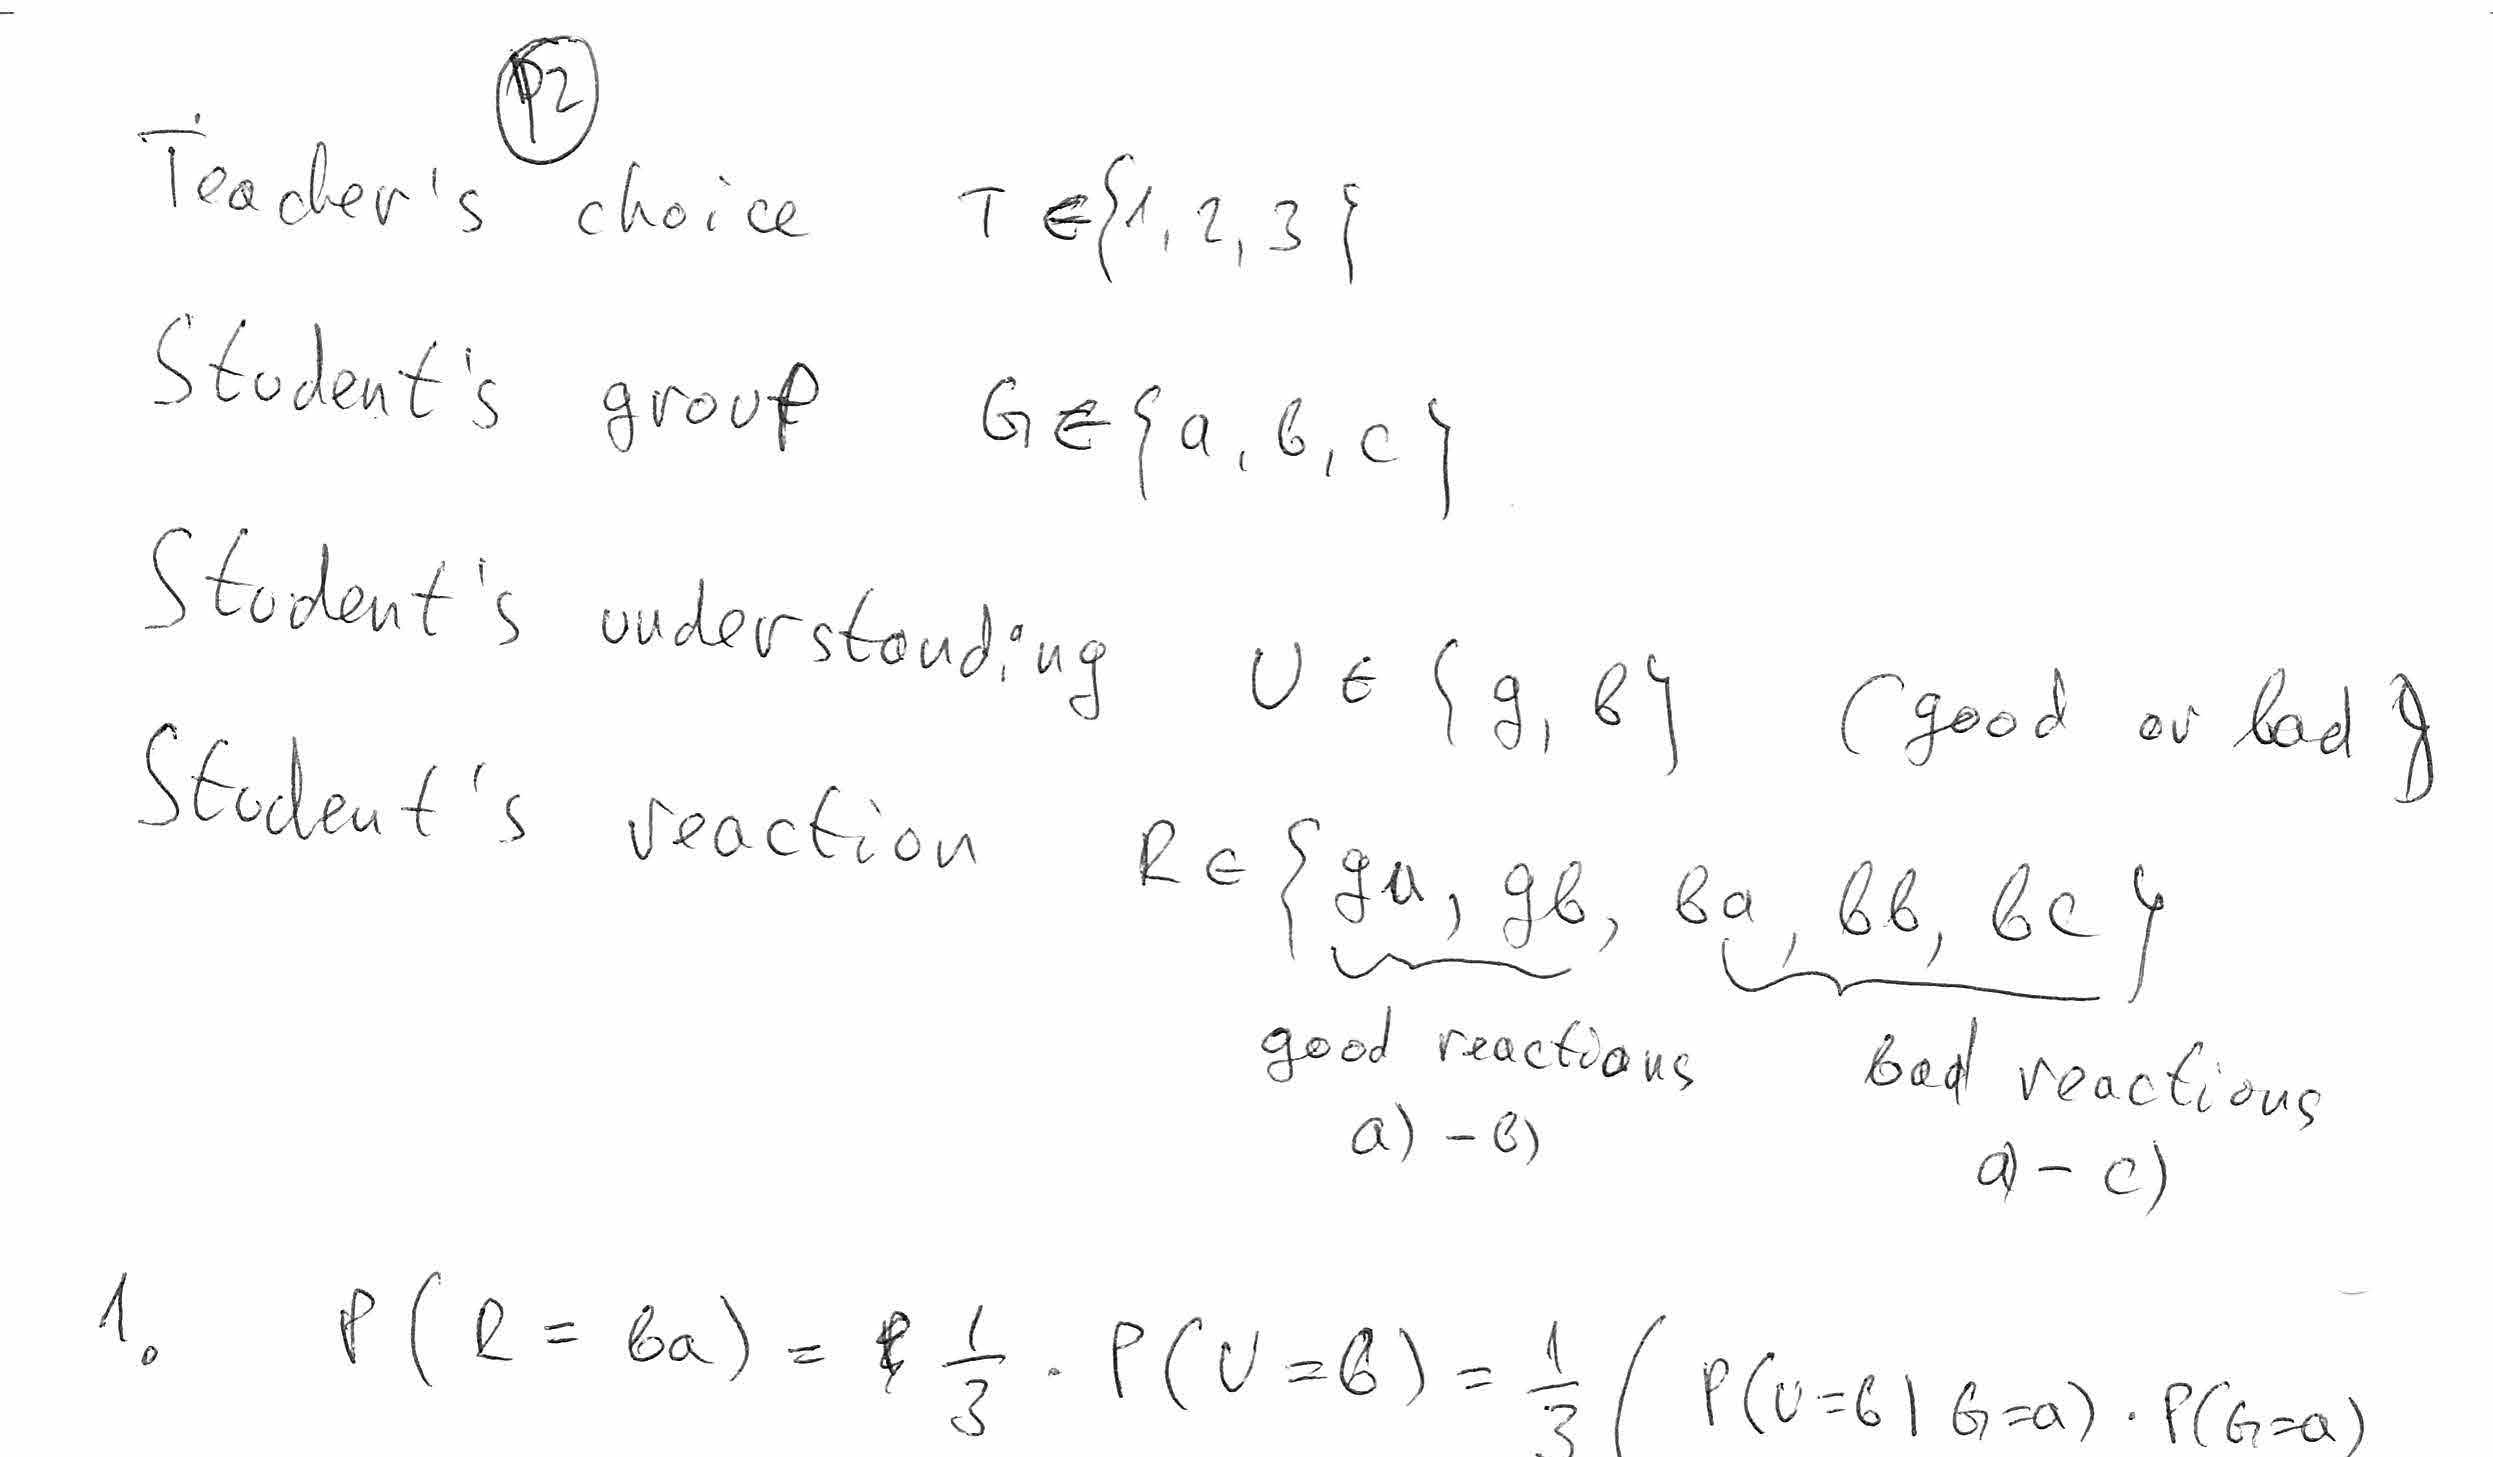 P2
Teacher's choice T ∈ {1, 2, 3}
Student's group G ∈ {a, b, c}
Student's understanding U ∈ {g, b} (good or bad)
Student's reaction R ∈ {ga, gb, ba, bb, bc}
good reactions bad reactions
a) - b) a) - c)
1. P(R = ba) = 1/3 · P(U = b) = 1/3 ( P(U=b | G=a) · P(G=a)